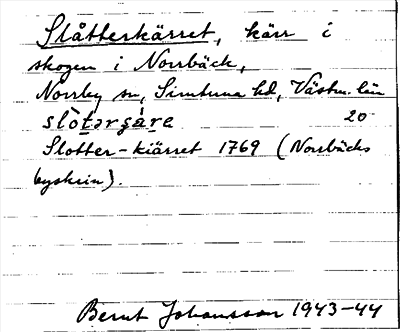 Slåtterkärret, kärr i
skogen i Norrbäck,
Norrby sn, Simtuna hd, Västm. län
slòtərɕä̀rə 20
Slotter-kiärret 1769 (Norrbäcks
byskrin).
Bernt Johansson 1943-44